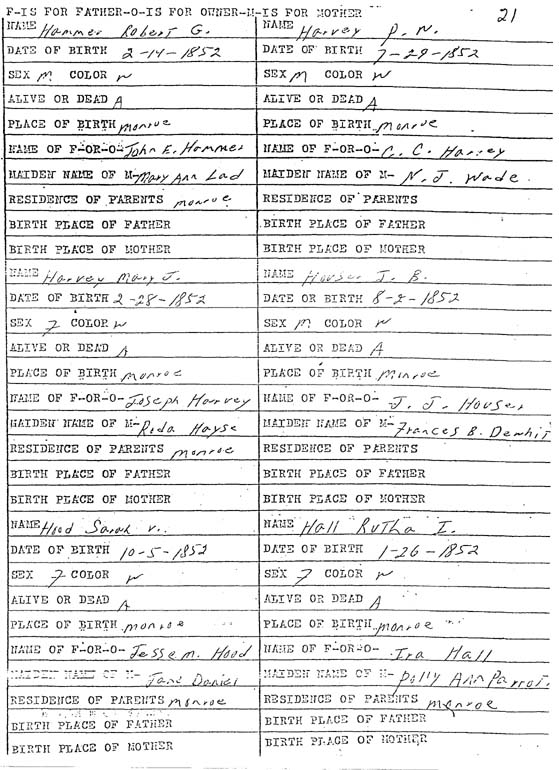 F-IS FOR FATHER-O-IS FOR OWNER-M-IS FOR MOTHER
21
NAME Hammer Robert G.
DATE OF BIRTH 2-14-1852
SEX M COLOR W
ALIVE OR DEAD A
PLACE OF BIRTH monroe
NAME OF F-OR-O- John E. Hammer
MAIDEN NAME OF M- Mary Ann Lad
RESIDENCE OF PARENTS monroe
BIRTH PLACE OF FATHER
BIRTH PLACE OF MOTHER
NAME Harvey Mary J.
DATE OF BIRTH 2-28-1852
SEX 7 COLOR W
ALIVE OR DEAD A
PLACE OF BIRTH monroe
NAME OF F-OR-O- Joseph Harvey
MAIDEN NAME OF M- Reda Hayse
RESIDENCE OF PARENTS monroe
BIRTH PLACE OF FATHER
BIRTH PLACE OF MOTHER
NAME Hood Sarah V.
DATE OF BIRTH 10-5-1852
SEX 7 COLOR W
ALIVE OR DEAD A
PLACE OF BIRTH monroe
NAME OF F-OR-O- Jesse m. Hood
MAIDEN NAME OF M- Jane Daniel
RESIDENCE OF PARENTS monroe
BIRTH PLACE OF FATHER
BIRTH PLACE OF MOTHER
NAME Harvey P. N.
DATE OF BIRTH 7-29-1852
SEX M COLOR W
ALIVE OR DEAD A
PLACE OF BIRTH monroe
NAME OF F-OR-O- C. C. Harvey
MAIDEN NAME OF M- N. J. Wade
RESIDENCE OF PARENTS
BIRTH PLACE OF FATHER
BIRTH PLACE OF MOTHER
NAME Houser J. B.
DATE OR BIRTH 8-2-1852
SEX M COLOR W
ALIVE OR DEAD A
PLACE OF BIRTH Monroe
NAME OF F-OR-O- J. J. Houser
MAIDEN NAME OF M- Frances B.
RESIDENCE OF PARENTS
BIRTH PLACE OF FATHER
BIRTH PLACE OF MOTHER
NAME Hall Rutha I.
DATE OF BIRTH 1-26-1852
SEX 7 COLOR W
ALIVE OR DEAD A
PLACE OF BIRTH monroe
NAME OF F-OR-O- Ira Hall
MAIDEN NAME OF M- Polly Ann Parrot.
RESIDENCE OF PARENTS monroe
BIRTH PLACE OF FATHER
BIRTH PLACE OF MOTHER